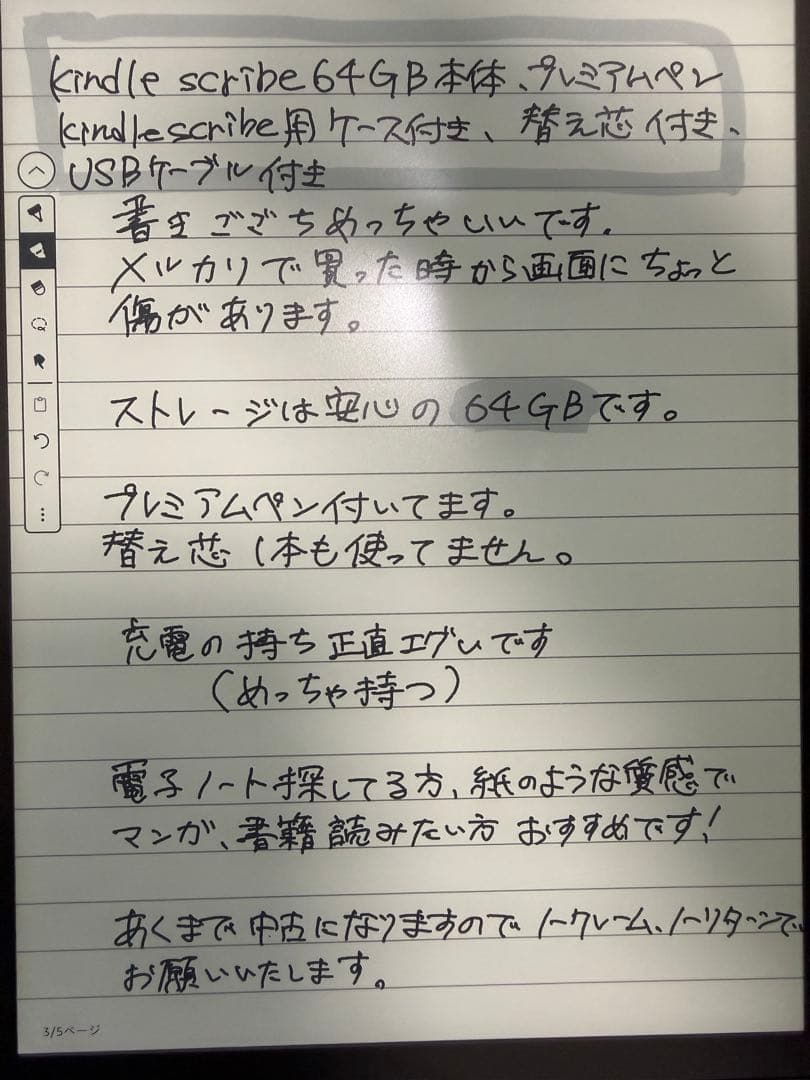 kindle scribe 64GB本体、プレミアムペン
kindle scribe用ケース付き、替え芯付き、
USBケーブル付き
書きごごちめっちゃいいです。
メルカリで買った時から画面にちょっと
傷があります。
ストレージは安心の64GBです。
プレミアムペン付いてます。
替え芯1本も使ってません。
充電の持ち正直エグいです
(めっちゃ持つ)
電子ノート探してる方、紙のような質感で
マンガ、書籍読みたい方おすすめです!
あくまで中古になりますのでノークレーム、ノーリターンで
お願いいたします。
3/5ページ